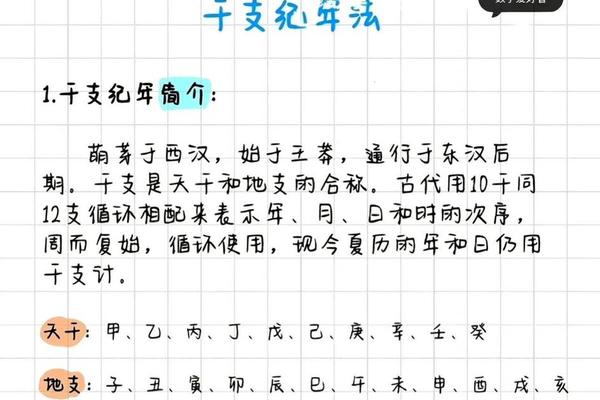 干支纪年法
1.干支纪年简介：
萌芽于西汉，始于王莽，通行于东汉后
期。干支是天干和地支的合称。古代用10干同
12支循环相配来表示年、月、日和时的次序，
周而复始，循环使用，现今夏历的年和日仍用
干支计。
天干：甲、乙、丙、丁、戊、己、庚、辛、壬、癸
地支：子、丑、寅、卯、辰、巳、午、未、申、酉、戌、亥